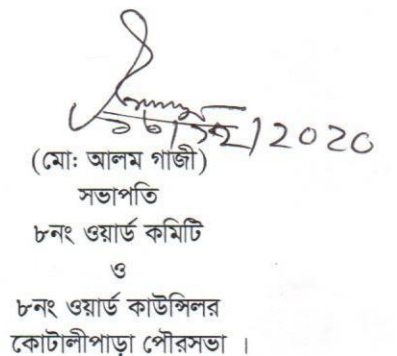 ১৬/১২/2020
(মো: আলম গাজী)
সভাপতি
৮নং ওয়ার্ড কমিটি
ও
৮নং ওয়ার্ড কাউন্সিলর
কোটালীপাড়া পৌরসভা ।